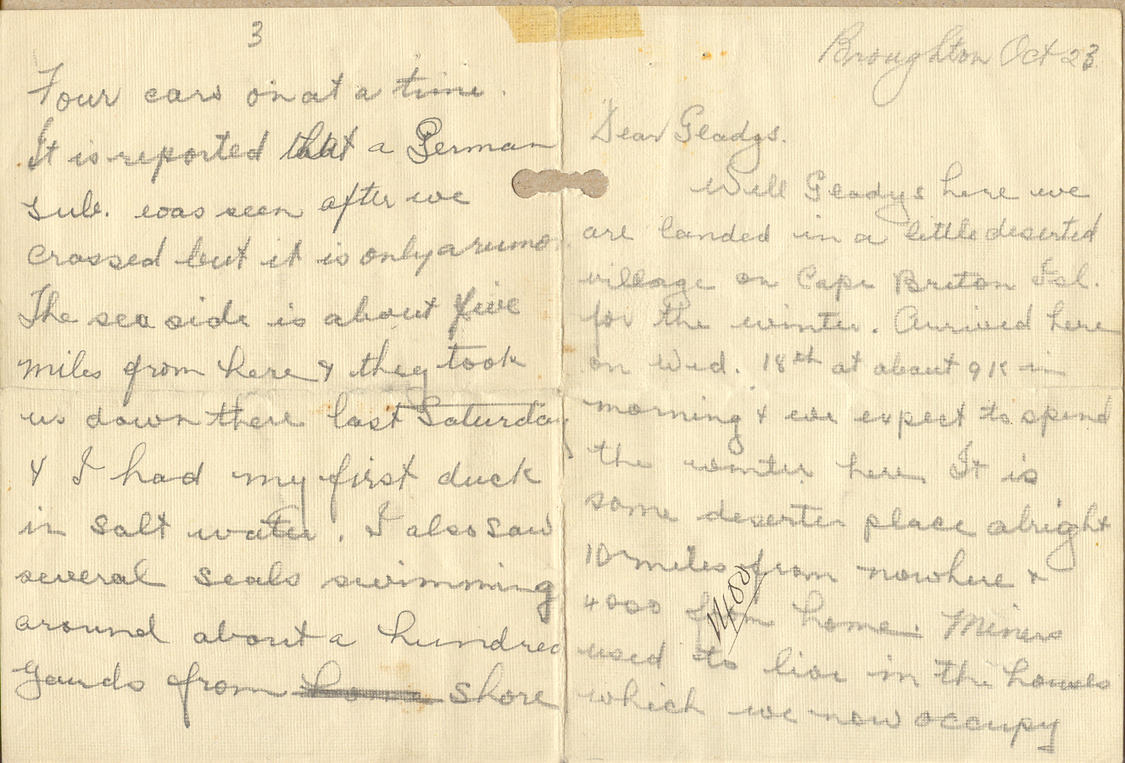 3
Four cars on at a time.
It is reported that a German
sub. was seen after we
crossed but it is only a rumo
The sea side is about five
miles from here & they took
us down there last Saturday
& I had my first duck
in salt water. I also saw
several seals swimming
around about a hundred
yards from home shore
Broughton Oct 23.
Dear Gladys.
Well Gladys here we
are landed in a little deserted
village on Cape Breton Isl.
for the winter. Arrived here
on Wed. 18th at about 9 K in
morning & we expect to spend
the winter here It is
some deserter place alright
10 miles from nowhere &
4000 from home. Miners
1400
used to live in the houses
which we now occupy